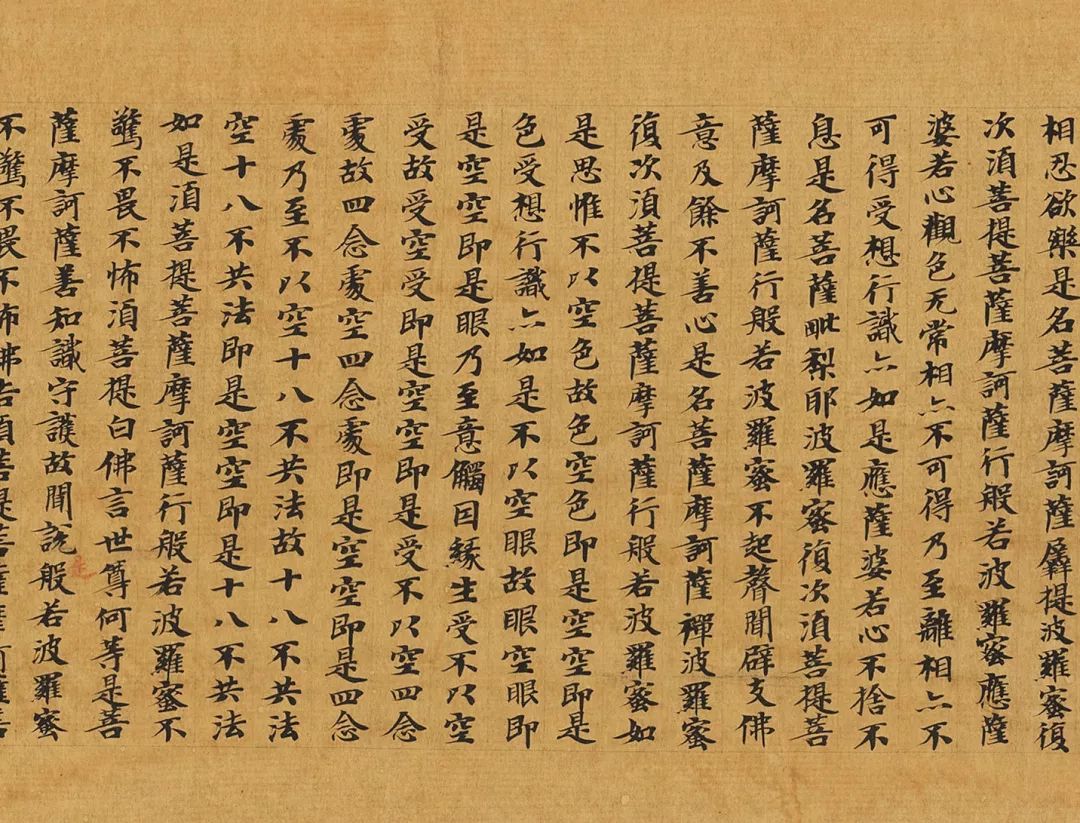 相忍欲樂是名菩薩摩訶薩羼提波羅蜜復
次湏菩提菩薩摩訶薩行般若波羅蜜應薩
婆若心觀色无常相亦不可得乃至離相亦不
可得受想行識亦如是應薩婆若心不捨不
息是名菩薩毗梨耶波羅蜜復次湏菩提菩
薩摩訶薩行般若波羅蜜不起聲聞辟支佛
意及餘不善心是名菩薩摩訶薩禪波羅蜜
復次湏菩提菩薩摩訶薩行般若波羅蜜如
是思惟不以空色故色空色即是空空即是
色受想行識亦如是不以空眼故眼空眼即
是空空即是眼乃至意觸因緣生受不以空
受故受空受即是空空即是受不以空四念
處故四念處空四念處即是空空即是四念
處乃至不以空十八不共法故十八不共法
空十八不共法即是空空即是十八不共法
如是湏菩提菩薩摩訶薩行般若波羅蜜不
驚不畏不怖湏菩提白佛言世尊何等是菩
薩摩訶薩善知識守護故聞說是般若波羅蜜
不驚不畏不怖佛告湏菩提菩薩摩訶薩善